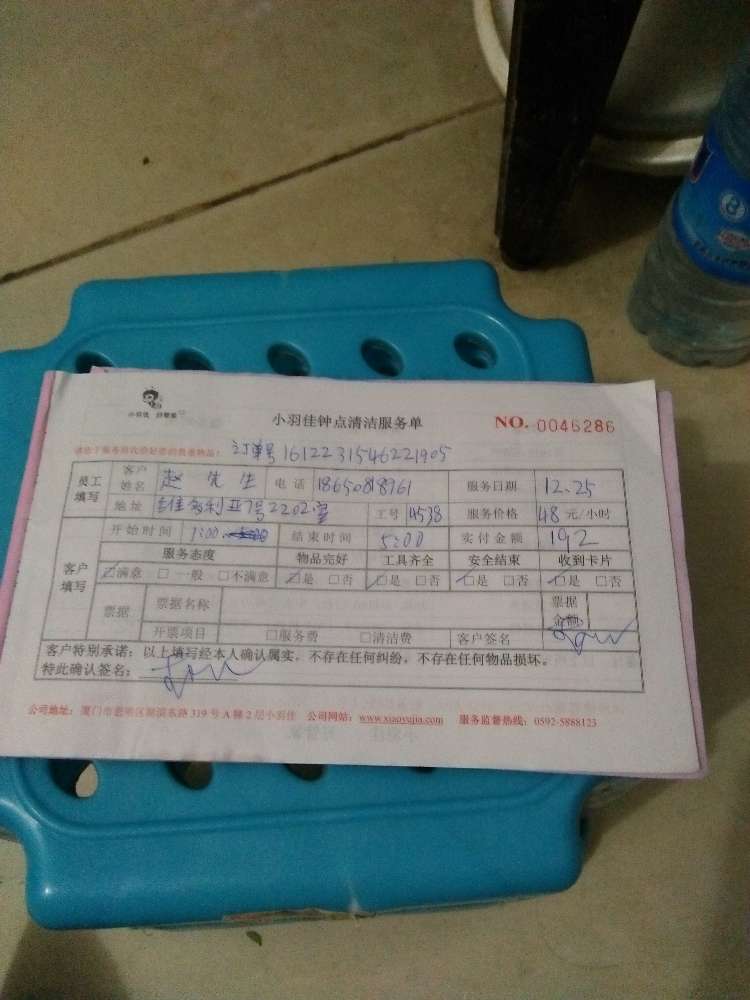 小羽佳 好管家
小羽佳钟点清洁服务单
NO. 0046286
订单号 1612231546221905
员工填写 客户姓名 赵先生 电话 18650818761 服务日期 12.25
地址 维多利亚7号2202室 工号 4538 服务价格 48元/小时
客户填写 开始时间 1:00 结束时间 5:00 实付金额 192
服务态度 物品完好 工具齐全 安全结束 收到卡片
☑满意 □一般 □不满意 ☑是 □否 ☑是 □否 ☑是 □否 ☑是 □否
票据 票据名称 票据金额
开票项目 □服务费 □清洁费 客户签名
客户特别承诺：以上填写经本人确认属实，不存在任何纠纷，不存在任何物品损坏。
特此确认签名：
公司地址：厦门市思明区湖滨东路319号A梯2层小羽佳 公司网站：www.xiaoyujia.com 服务监督热线：0592-5888123
8